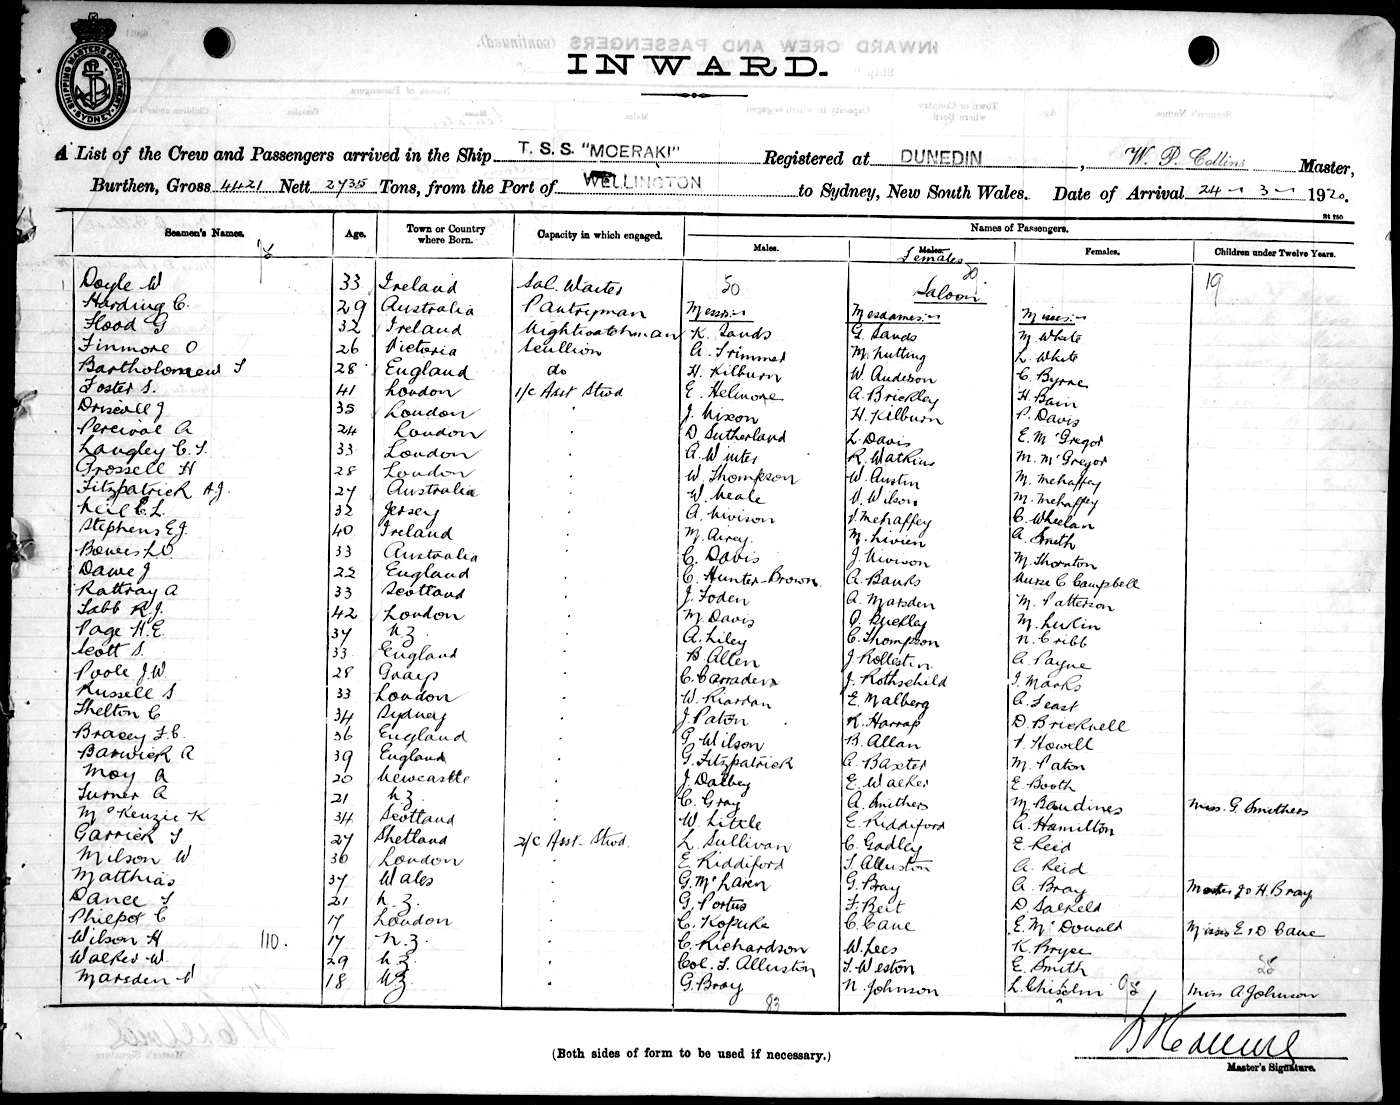 SHIPPING MASTERS DEPARTMENT SYDNEY
INWARD.
A List of the Crew and Passengers arrived in the Ship T. S. S. "MOERAKI" Registered at DUNEDIN, W. P. Collins Master,
Burthen, Gross 4421 Nett 2735 Tons, from the Port of WELLINGTON to Sydney, New South Wales. Date of Arrival 24 - 3 - 1920.
Seamen's Names. Age. Town or Country where Born. Capacity in which engaged. Names of Passengers.
Males. Males. Females Females. Children under Twelve Years.
50 Saloon 19
Doyle W 33 Ireland Sal. Waiter Messrs Mesdames Misses
Harding C. 29 Australia Pantryman K. Sands G. Sands M. White
Flood G 32 Ireland Nightwatchman A. Trimmer M. Nutting L. White
Finmore O 26 Victoria Scullion H. Kilburn W. Anderson C. Byrne
Bartholomew T 28 England do E. Helmore A. Brickley H. Bain
Foster S. 41 London 1/c Asst Stwd J. Nixon H. Kilburn P. Davis
Driscoll J 35 London D. Sutherland L. Davis E. McGregor
Percival A 24 London A. Winter R. Watkins M. McGregor
Langley C. S. 33 London W. Thompson W. Austin M. Mehaffey
Grossell H 28 London W. Neale V. Wilson M. Mehaffey
Fitzpatrick A.J. 27 Australia A. Nivison V. Mehaffey C. Wheelan
Neil C. L. 32 Jersey M. Airey M. Nivien A. Smith
Stephens E.J. 40 Ireland C. Davis J. Nivison M. Thornton
Bowers L.O 33 Australia C. Hunter-Brown A. Banks Nurse C Campbell
Dawe J 22 England J. Foden A. Marsden M. Patterson
Rattray A 33 Scotland M. Davis O. Buckley M. Luxin
Tabb R.J. 42 London A. Liley C. Thompson N. Cribb
Page H. E. 37 N.Z. B. Allen J. Rolleston A. Payne
Scott S. 33 England C. Carraden J. Rothschild J. Marks
Poole J.W. 28 W. Riordan E. Malberg A. Feast
Russell S 33 London J. Paton R. Harrap D. Bricknell
Shelton C 34 Sydney G. Wilson B. Allan V. Howell
Bracey F.C. 36 England G. Fitzpatrick A. Baxter M. Paton
Barwick A 39 England J. Dalbey E. Walker E. Booth
Moy A 20 Newcastle C. Gray A. Smithers M. Baudines Miss. G. Smithers
Turner A 21 N.Z. W. Little E. Riddiford A. Hamilton
McKenzie K 34 Scotland L. Sullivan C. Gadley E. Reid
Garrick T 27 Shetland 2/c Asst. Stwd. E Riddiford S. Alluston A. Reid
Milson W 36 London G. McLaren G. Bray A. Bray H. Bray
Matthias 37 Wales G. Portus F. Beit D. Salkeld
Dance S 21 N.Z. C. Kopuke C. Cane E. McDonald Misses E & D Cane
Philpot C 17 London C. Richardson W. Lees K. Bryce
Wilson H 110. 17 N.Z. Col. S. Alluston T. Weston E. Smith
Walker W. 29 N.Z. G. Bray N. Johnson L. Chisolm Miss A. Johnson
Marsden V 18 N.Z. 83
(Both sides of form to be used if necessary.)
Master's Signature.